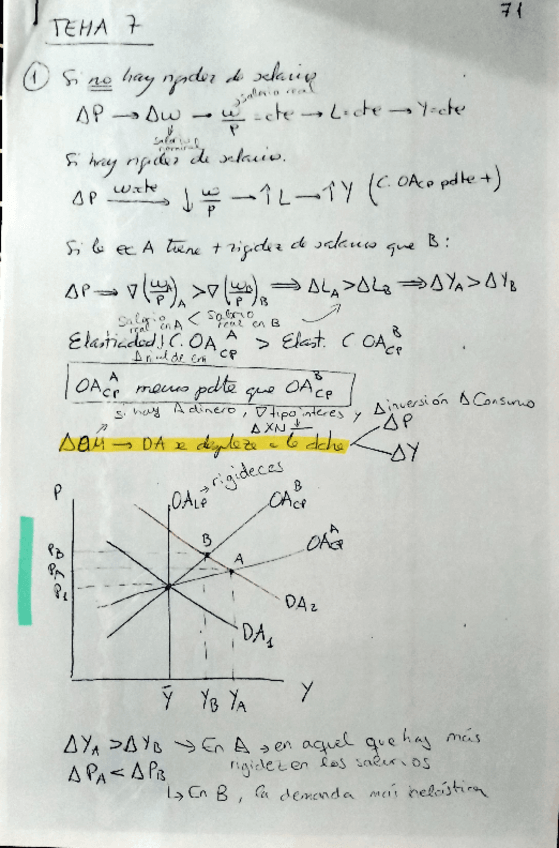 71
TEMA 7
① Si no hay rigidez de salarios
salario real
ΔP → Δw → w/P = cte → L = cte → Y = cte
salario nominal
Si hay rigidez de salario.
ΔP w=cte → ↓ w/P → ↑L → ↑Y (C. OAcp pdte +)
Si la ec A tiene + rigidez de salarios que B:
ΔP → ∇(w/P)A > ∇(w/P)B ⇒ ΔLA > ΔLB ⇒ ΔYA > ΔYB
Salario real en A < Salario real en B
Elasticidad C. OA A CP > Elast. C OA B CP
OA A CP menos pdte que OA B CP
si hay Δ dinero, ∇ tipo interes y Δ inversión Δ Consumo
ΔXN ↓
ΔP
ΔOM → DA se desplaza a la dcha
ΔY
rigideces
P
OALP
OA B CP
B
OA A CP
PB
A
PA
P1
DA2
DA1
Ȳ YB YA Y
ΔYA > ΔYB → En A → en aquel que hay más
rigidez en los salarios
ΔPA < ΔPB
↳ En B, la demanda más inelástica